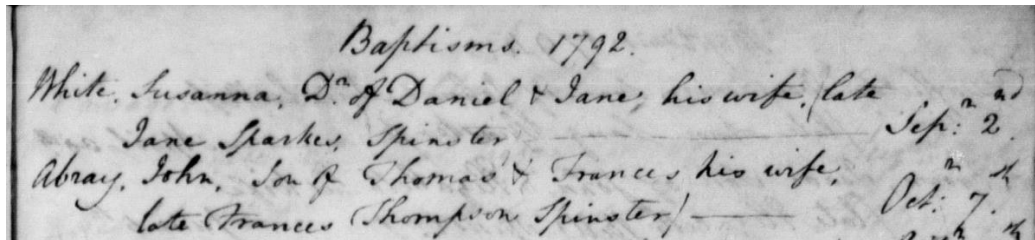 Baptisms. 1792.
White. Susanna, Dr. of Daniel & Jane, his wife, (late
Jane Sparkes, Spinster Sep:r 2nd.
Abray, John, Son of Thomas & Frances his wife,
late Frances Thompson Spinster) Oct:r 7.th